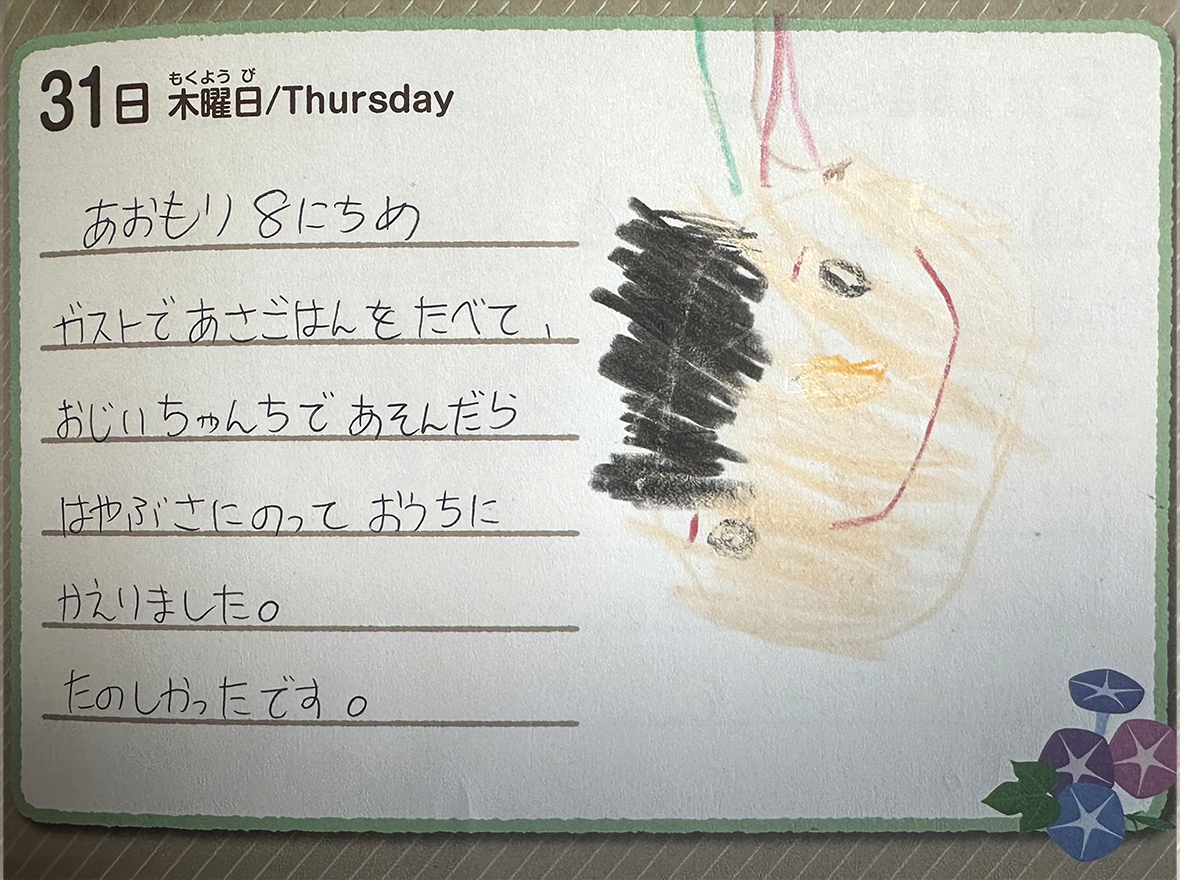 31日 木曜日/Thursday
もくようび
あおもり 8にちめ
ガストで あさごはんを たべて、
おじいちゃんちで あそんだら
はやぶさにのって おうちに
かえりました。
たのしかったです。